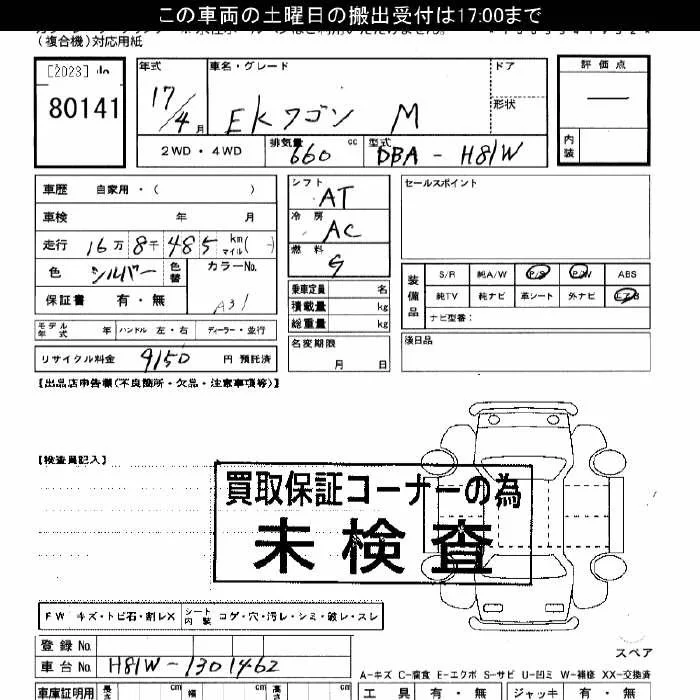 この車両の土曜日の搬出受付は17:00まで
(複合機)対応用紙
[2023]
80141
年式
17/4月
車名・グレード
EKワゴン M
ドア
形状
評価点
内装
2WD・4WD
排気量 660 cc
型式 DBA-H81W
車歴 自家用・( )
車検 年 月
走行 16万8千485 km マイル ( )
色 シルバー 色替
カラーNo. A31
保証書 有・無
シフト AT
冷房 AC
燃料 G
乗車定員 名
積載量 kg
総重量 kg
名変期限 月 日
セールスポイント
装備品
S/R 純A/W P/S P/W ABS
純TV 純ナビ 革シート 外ナビ エアB
ナビ型番:
モデル年式 年 ハンドル 左・右 ディーラー・並行
リサイクル料金 9150 円 預託済
後日品
【出品店申告欄(不良箇所・欠品・注意事項等)】
【検査員記入】
買取保証コーナーの為
未検査
FW キズ・トビ石・割レX シート内装 コゲ・穴・汚レ・シミ・破レ・スレ
登録No.
車台No. H81W-1301462
スペア
A-キズ C-腐食 E-エクボ S-サビ U-凹ミ W-補修 XX-交換済
車庫証明用 長さ cm 幅 cm 高さ cm
工具 有・無 ジャッキ 有・無